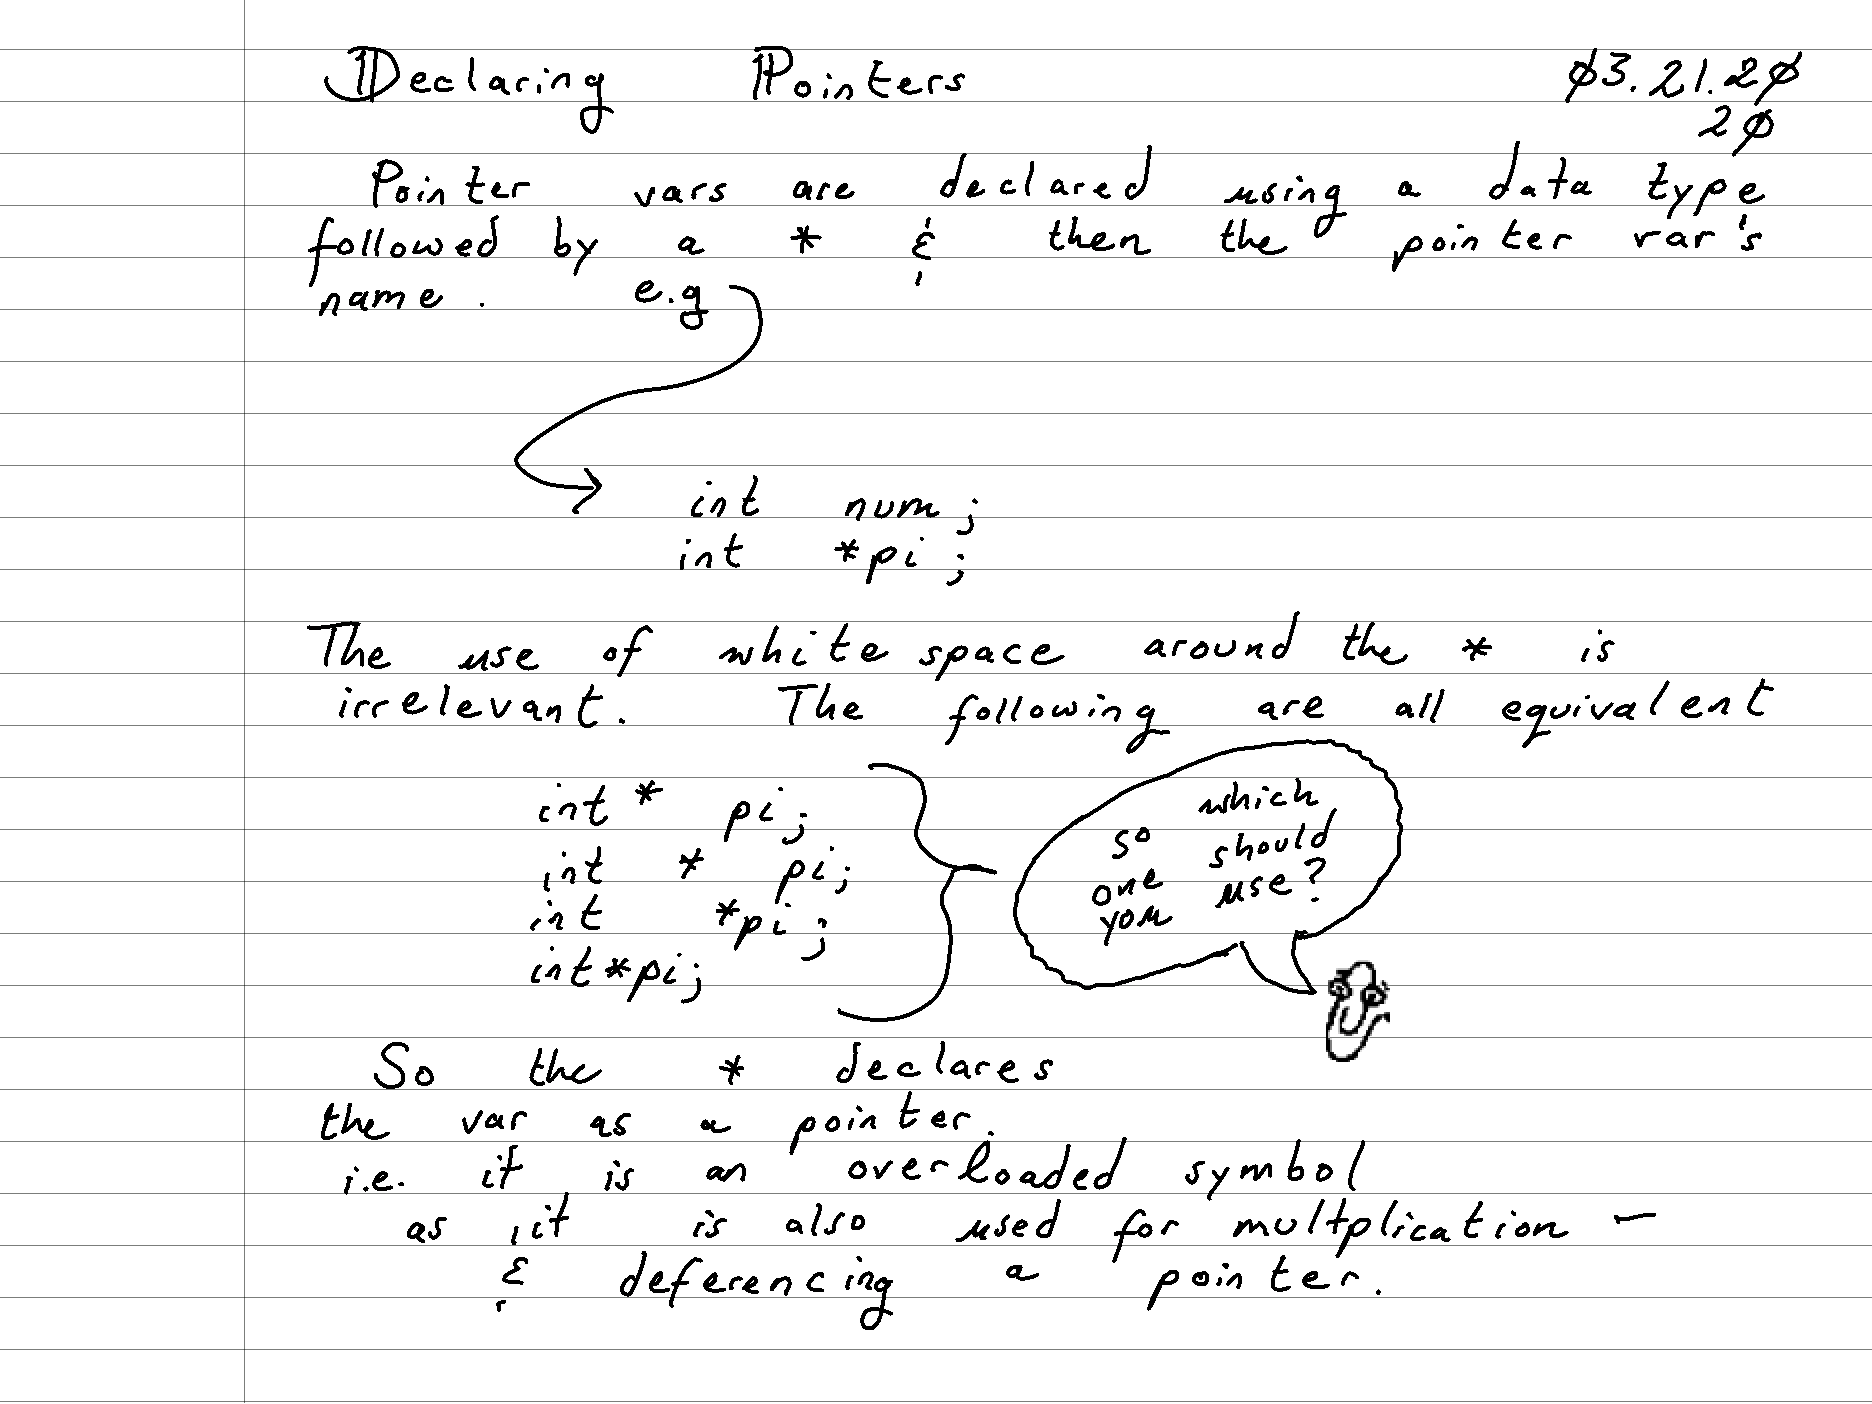 Declaring Pointers 03.21.20
20
Pointer vars are declared using a data type
followed by a * & then the pointer var's
name. e.g
int num;
int *pi;
The use of white space around the * is
irrelevant. The following are all equivalent
int* pi;
int * pi;
int *pi;
int*pi;
which
so should
one use?
you
So the * declares
the var as a pointer.
i.e. it is an overloaded symbol
as it is also used for multplication –
& deferencing a pointer.